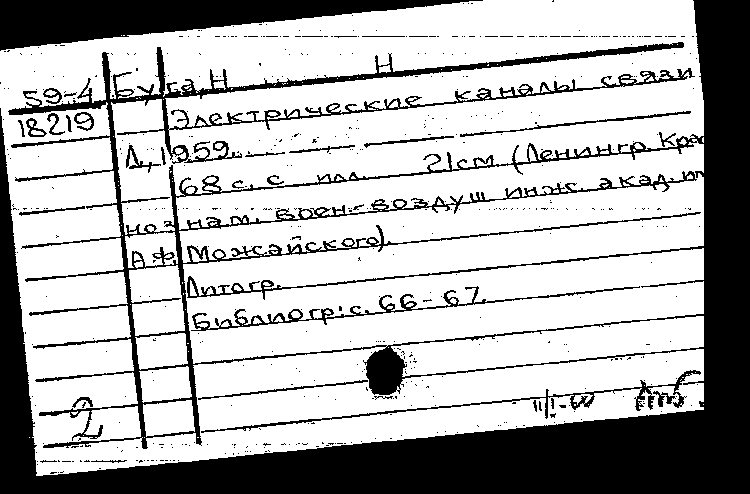 59-4 Буга, Н Н
18219 Электрические каналы связи
Л, 1959.
68 с. с илл. 21см (Ленингр. Крас
нознам. воен.-воздуш инж. акад. им
А Ф. Можайского).
Литогр.
Библиогр: с. 66-67.
2 11/I-60